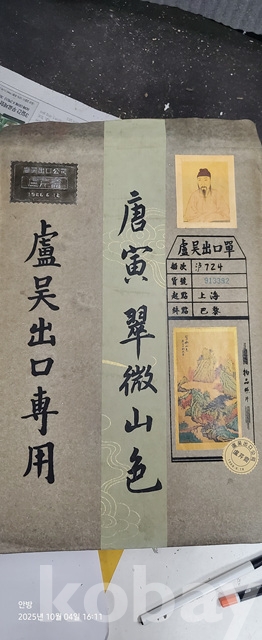 盧吴出口公司
盧吴出口專用
唐寅 翠微山色
盧吴出口單
船次 滬724
貨號
起點 上海
終點 巴黎
안방
2025년 10월 04일 16:11
kobay